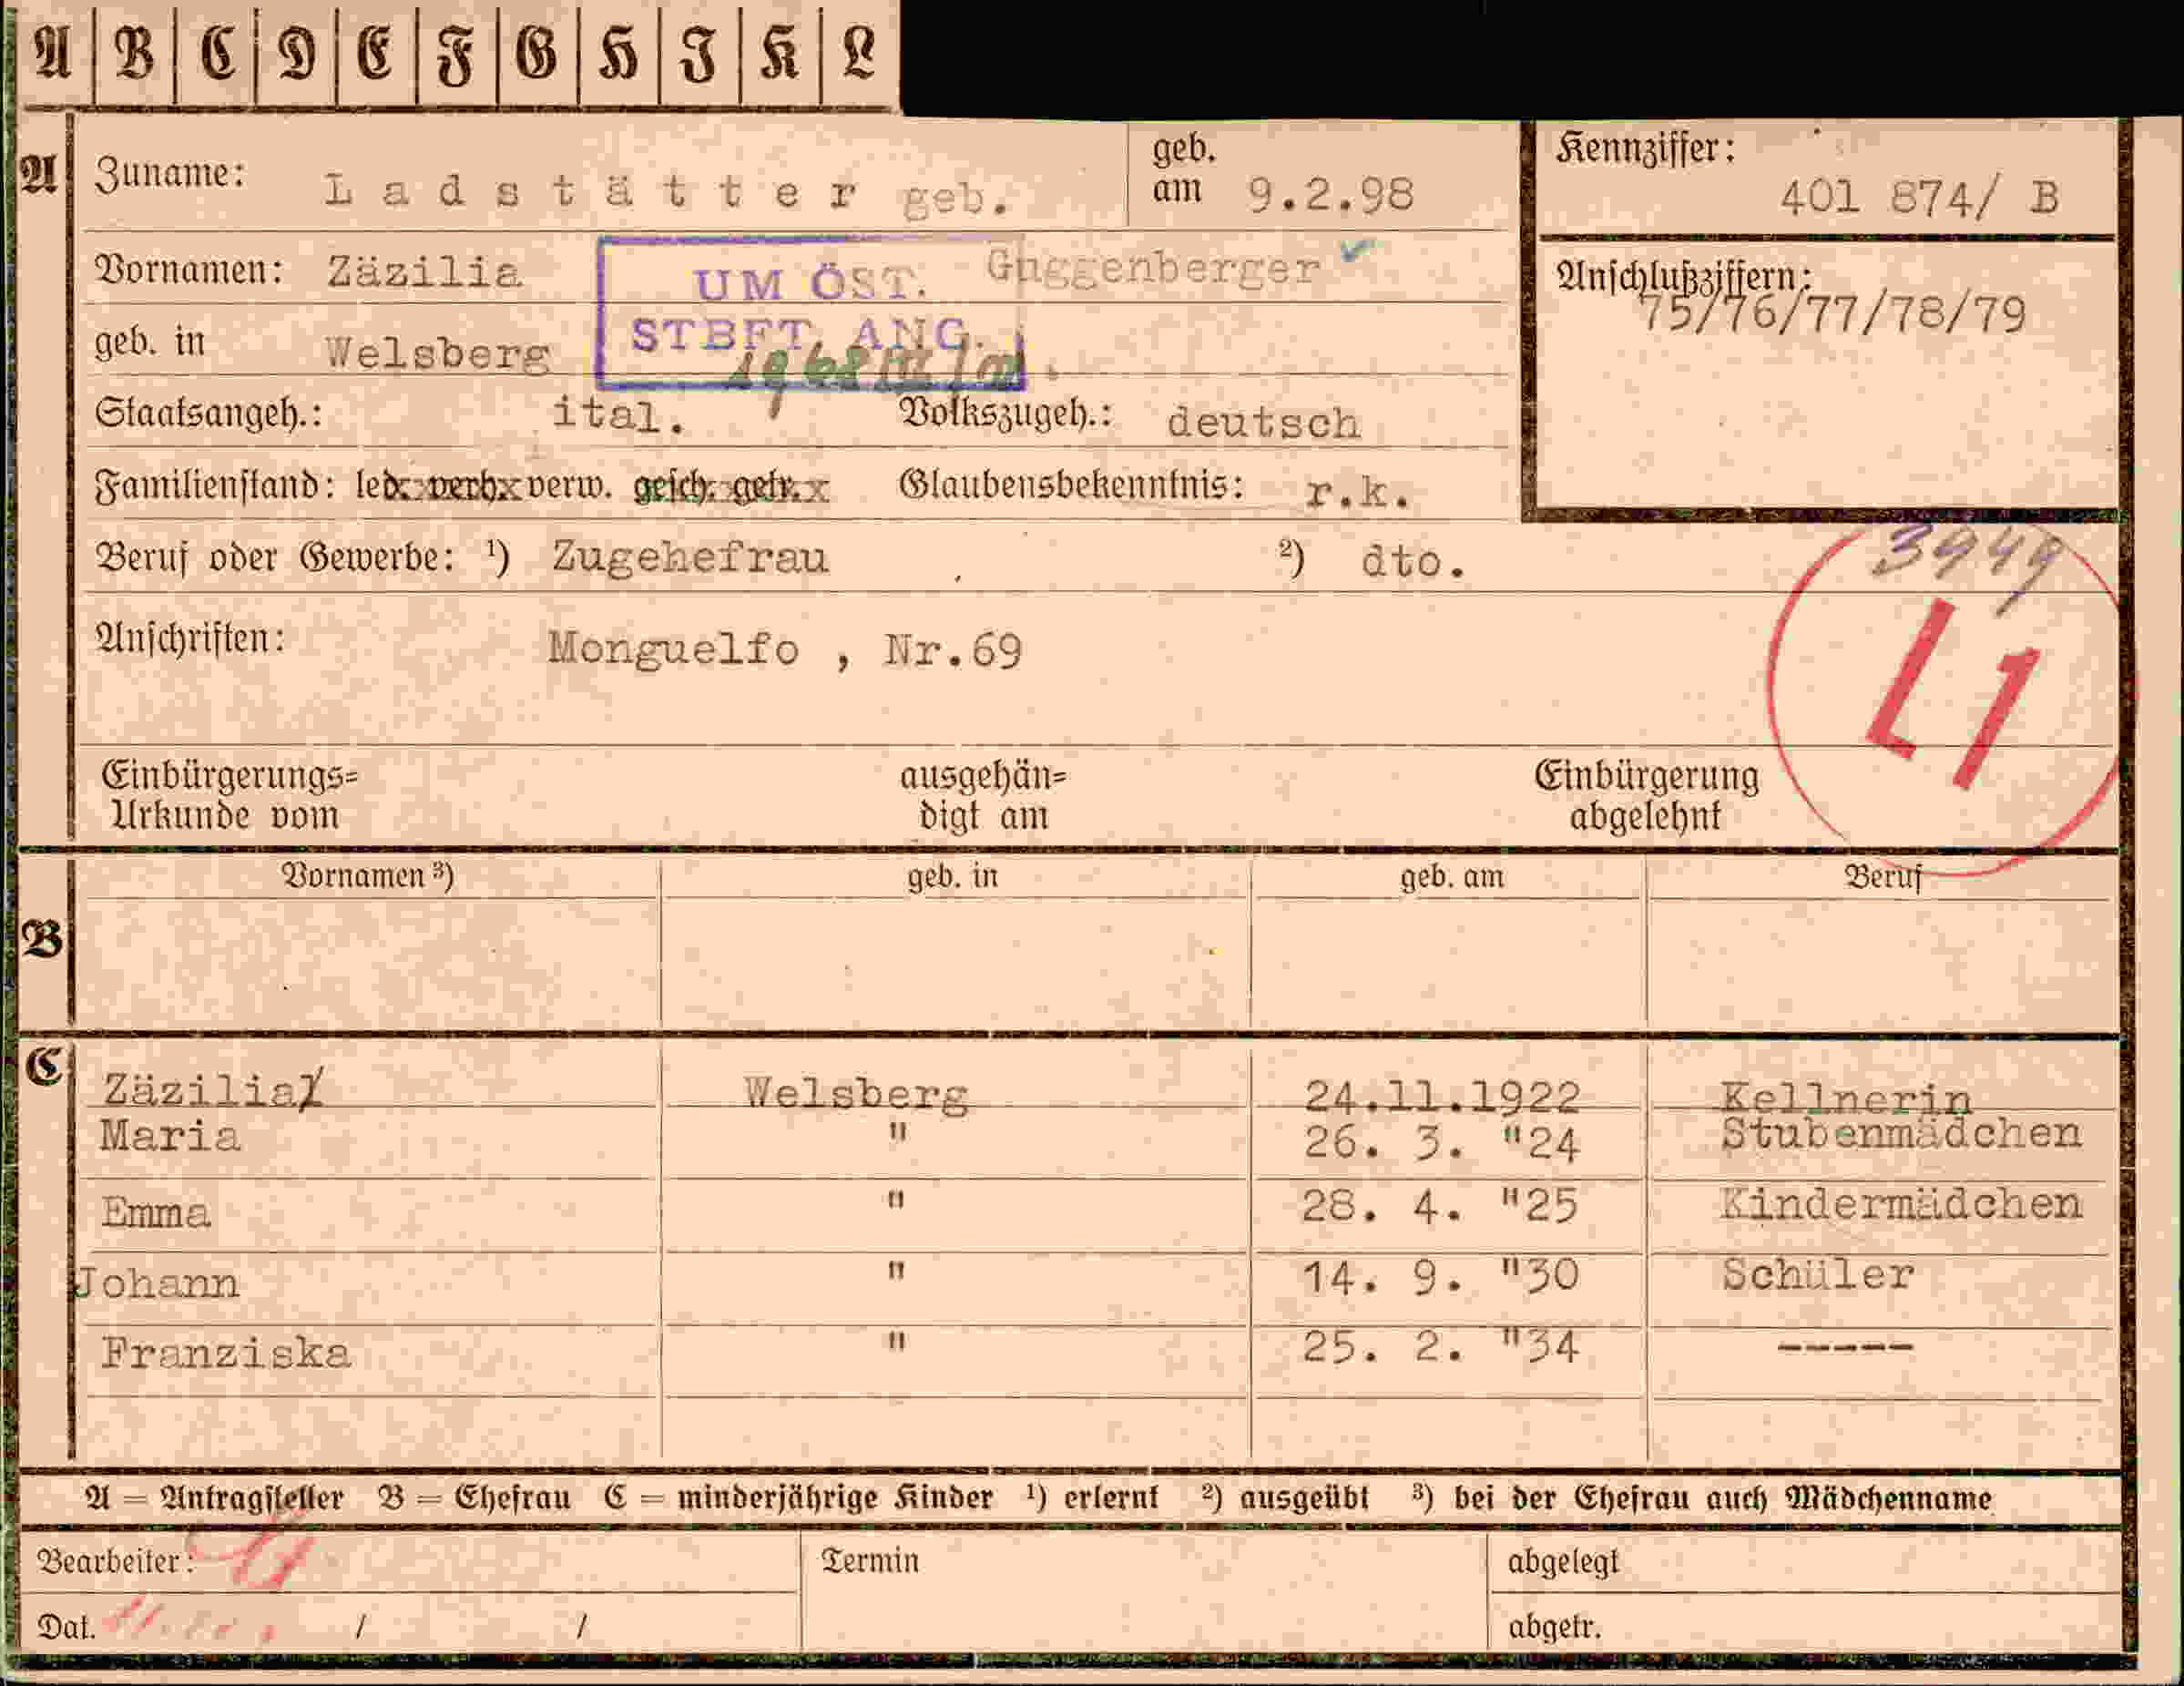 A B C D E F G H I K L
A Zuname: Ladstätter geb. geb. am 9.2.98 Kennziffer: 401 874/ B
Vornamen: Zäzilia Guggenberger Anschlußziffern: 75/76/77/78/79
UM ÖST.
STBFT. ANG.
geb. in Welsberg
Staatsangeh.: ital. Volkszugeh.: deutsch
Familienstand: led. verh. verw. gesch. getr. Glaubensbekenntnis: r.k.
Beruf oder Gewerbe: ¹) Zugehefrau ²) dto.
3949
L1
Anschriften: Monguelfo , Nr.69
Einbürgerungs= ausgehän= Einbürgerung
Urkunde vom digt am abgelehnt
Vornamen ³) geb. in geb. am Beruf
B
C Zäzilia Welsberg 24.11.1922 Kellnerin
Maria " 26. 3. "24 Stubenmädchen
Emma " 28. 4. "25 Kindermädchen
Johann " 14. 9. "30 Schüler
Franziska " 25. 2. "34 -----
A = Antragsteller B = Ehefrau C = minderjährige Kinder ¹) erlernt ²) ausgeübt ³) bei der Ehefrau auch Mädchenname
Bearbeiter: Termin abgelegt
Dat. / / abgetr.